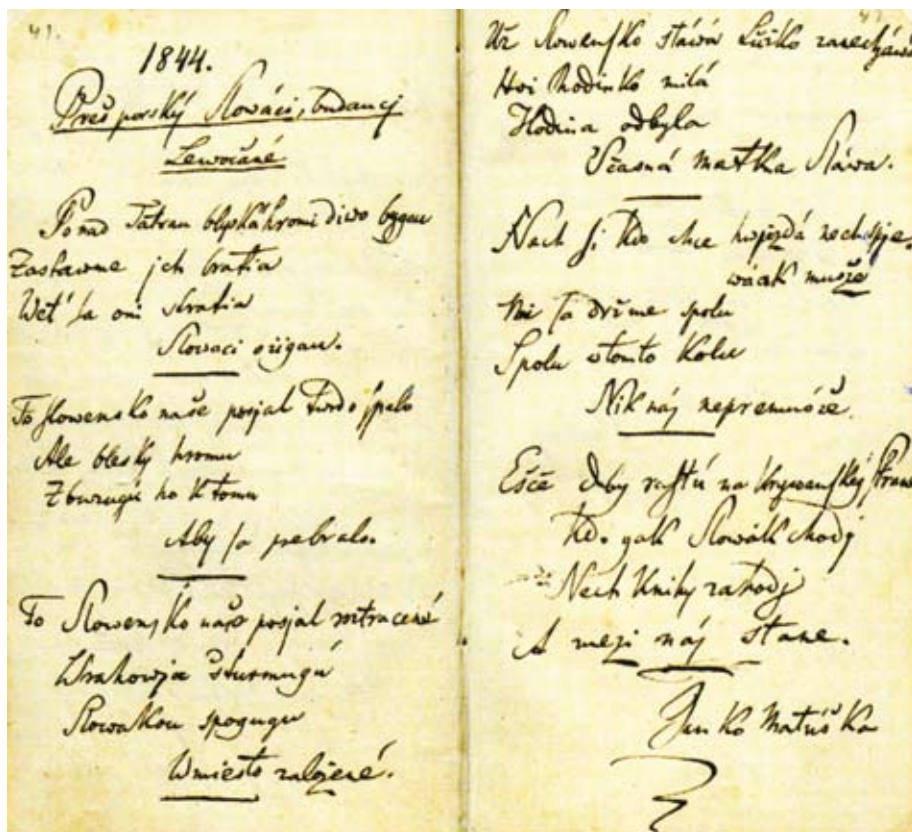 41.
1844.
Prešporský Slowáci, budaucj
Lewočané
Ponad Tatrau blyská hromi diwo bygau
Zastawme jch bratia
Weť sa oni stratia
Slowaci ožigau.
To slowensko naše posjal twrdo spalo
Ale blesky hromu
Zburzugú ho k tomu
Aby sa prebralo.
To Slowensko naše posjal roztracené
Wrahowja šturmugú
Slowákou spogugu
Wmiesto založené.
Už Slowensko stáwá Ličko zanecháwá
Hoi Rodinko milá
Hodina odbyla
Včasná matka Sláwa.
Nech si kdo chce hwjezdá nech spje-
wácek musže
Mi sa držme spolu
Spolu wtomto kolu
Nik nás nepremuože.
Ešče duby rastú na krywanskej strane
Kdo gak Slowák chodj
Nech knihy zahodj
A mezi nás stane.
Janko Matúška